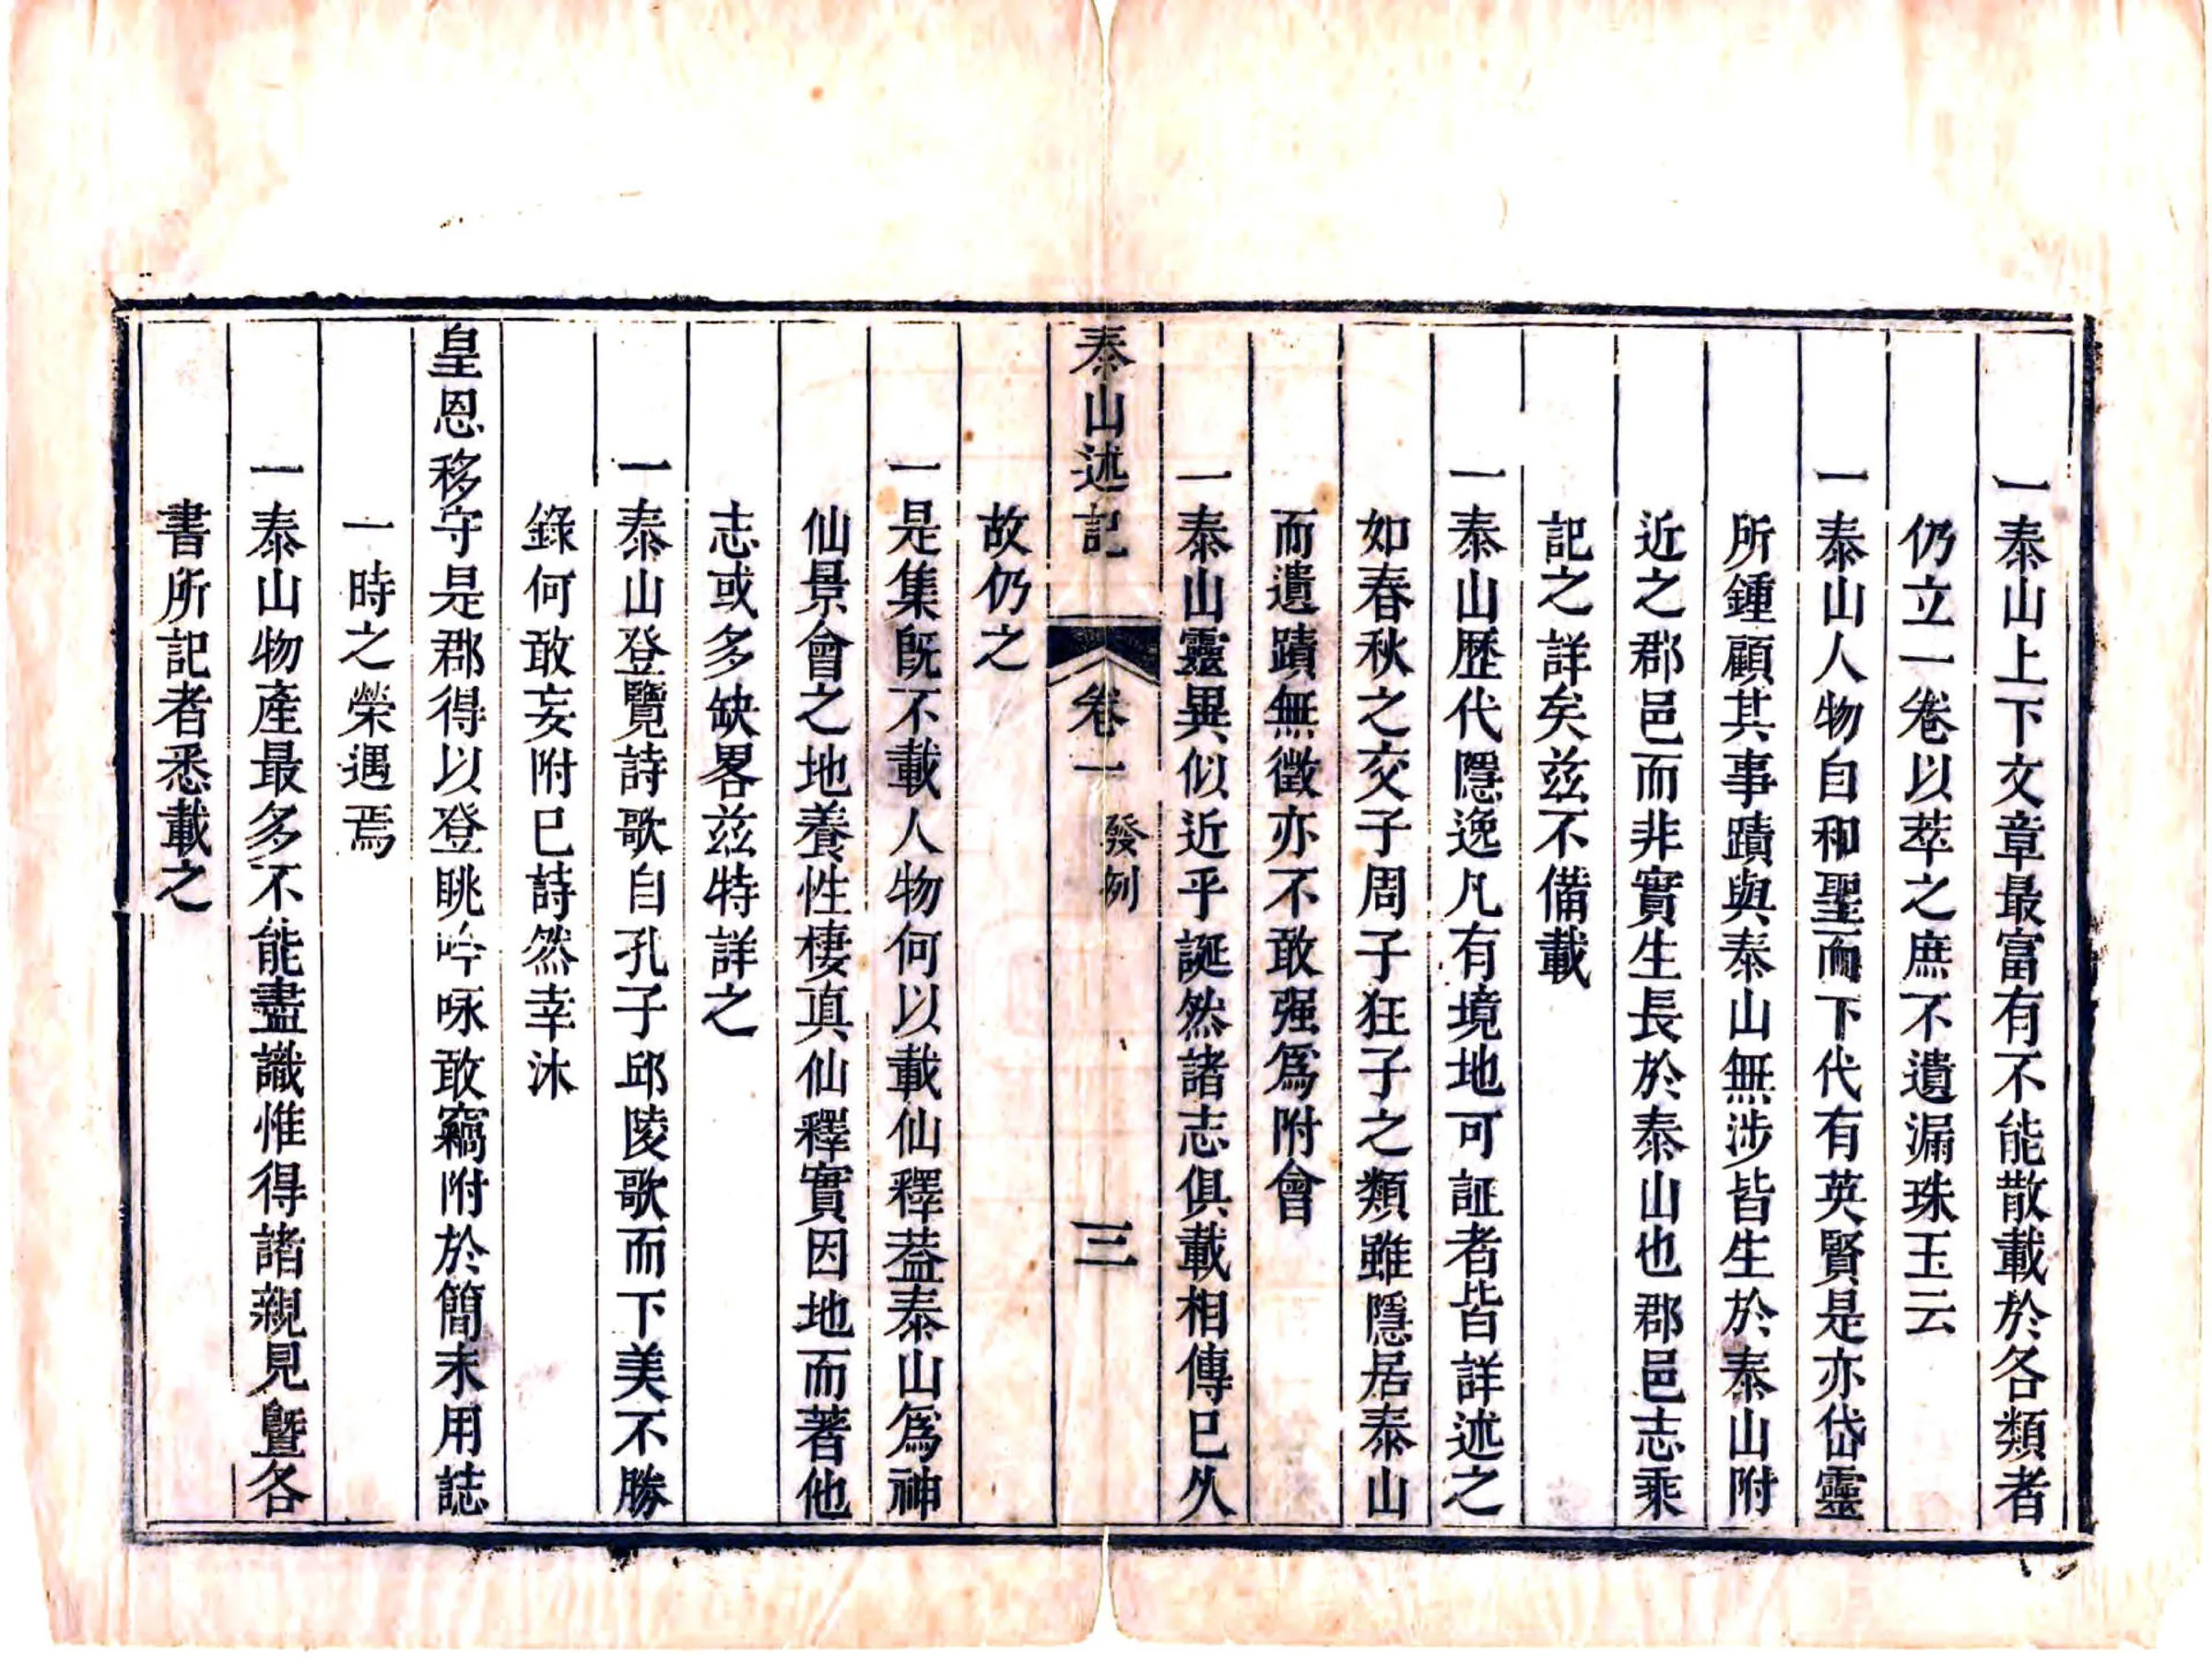 一泰山上下文章最富有不能散載於各類者
仍立一卷以萃之庶不遺漏珠玉云
一泰山人物自和聖而下代有英賢是亦岱靈
所鍾顧其事蹟與泰山無涉皆生於泰山附
近之郡邑而非實生長於泰山也郡邑志乘
記之詳矣兹不備載
一泰山歷代隱逸凡有境地可証者皆詳述之
如春秋之交子周子狂子之類雖隱居泰山
而遺蹟無徵亦不敢强爲附會
一泰山靈異似近乎誕然諸志俱載相傳已久
泰山述記
卷一
發例
三
故仍之
一是集旣不載人物何以載仙釋葢泰山爲神
仙景會之地養性棲真仙釋實因地而著他
志或多缺畧兹特詳之
一泰山登覽詩歌自孔子邱陵歌而下美不勝
錄何敢妄附已詩然幸沐
皇恩移守是郡得以登眺吟咏敢竊附於簡末用誌
一時之榮遇焉
一泰山物產最多不能盡識惟得諸親見曁各
書所記者悉載之